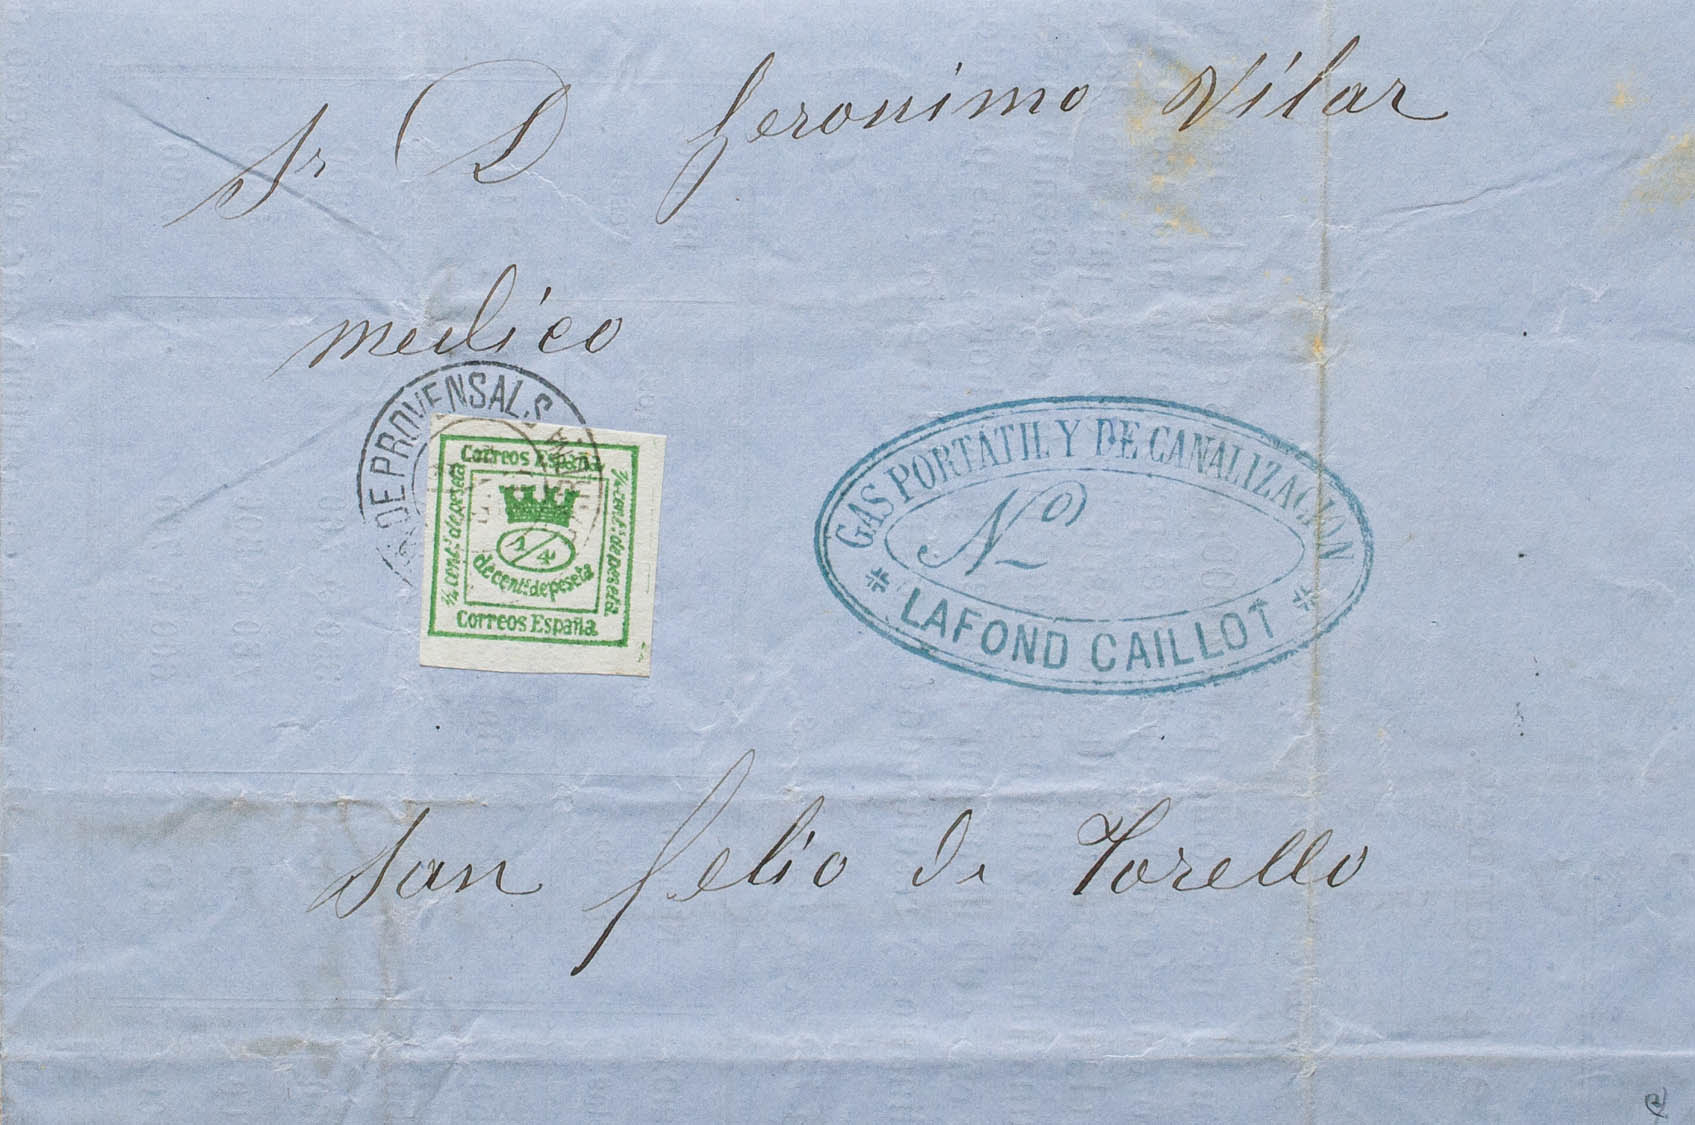 Sr D Geronimo Vilar
medico
DE PROVENSALS
Correos España
1/4 cent.s de peseta
1/4 cent.s de peseta
1/4
de cent.s de peseta
Correos España
GAS PORTÁTIL Y DE CANALIZACION
No
LAFOND CAILLOT
San Felio de Torello